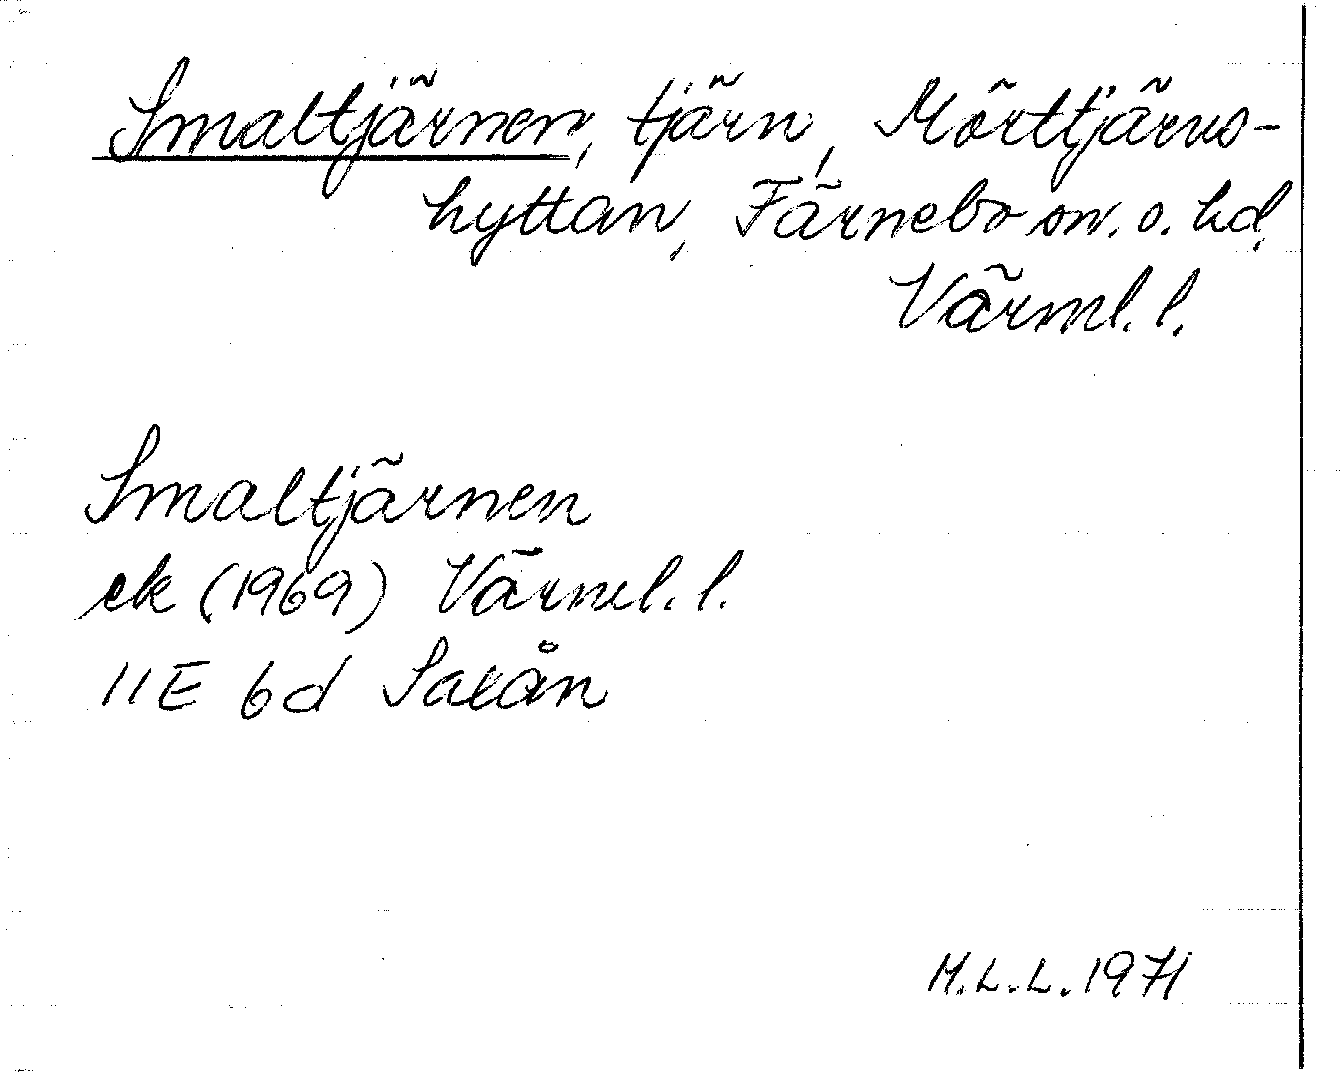 Smaltjärnen, tjärn, Mörttjärns-
hyttan, Färnebo sn. o. hd,
Värml. l.
Smaltjärnen
ek (1969) Värml. l.
11E 6d Saxån
M.L.L. 1971